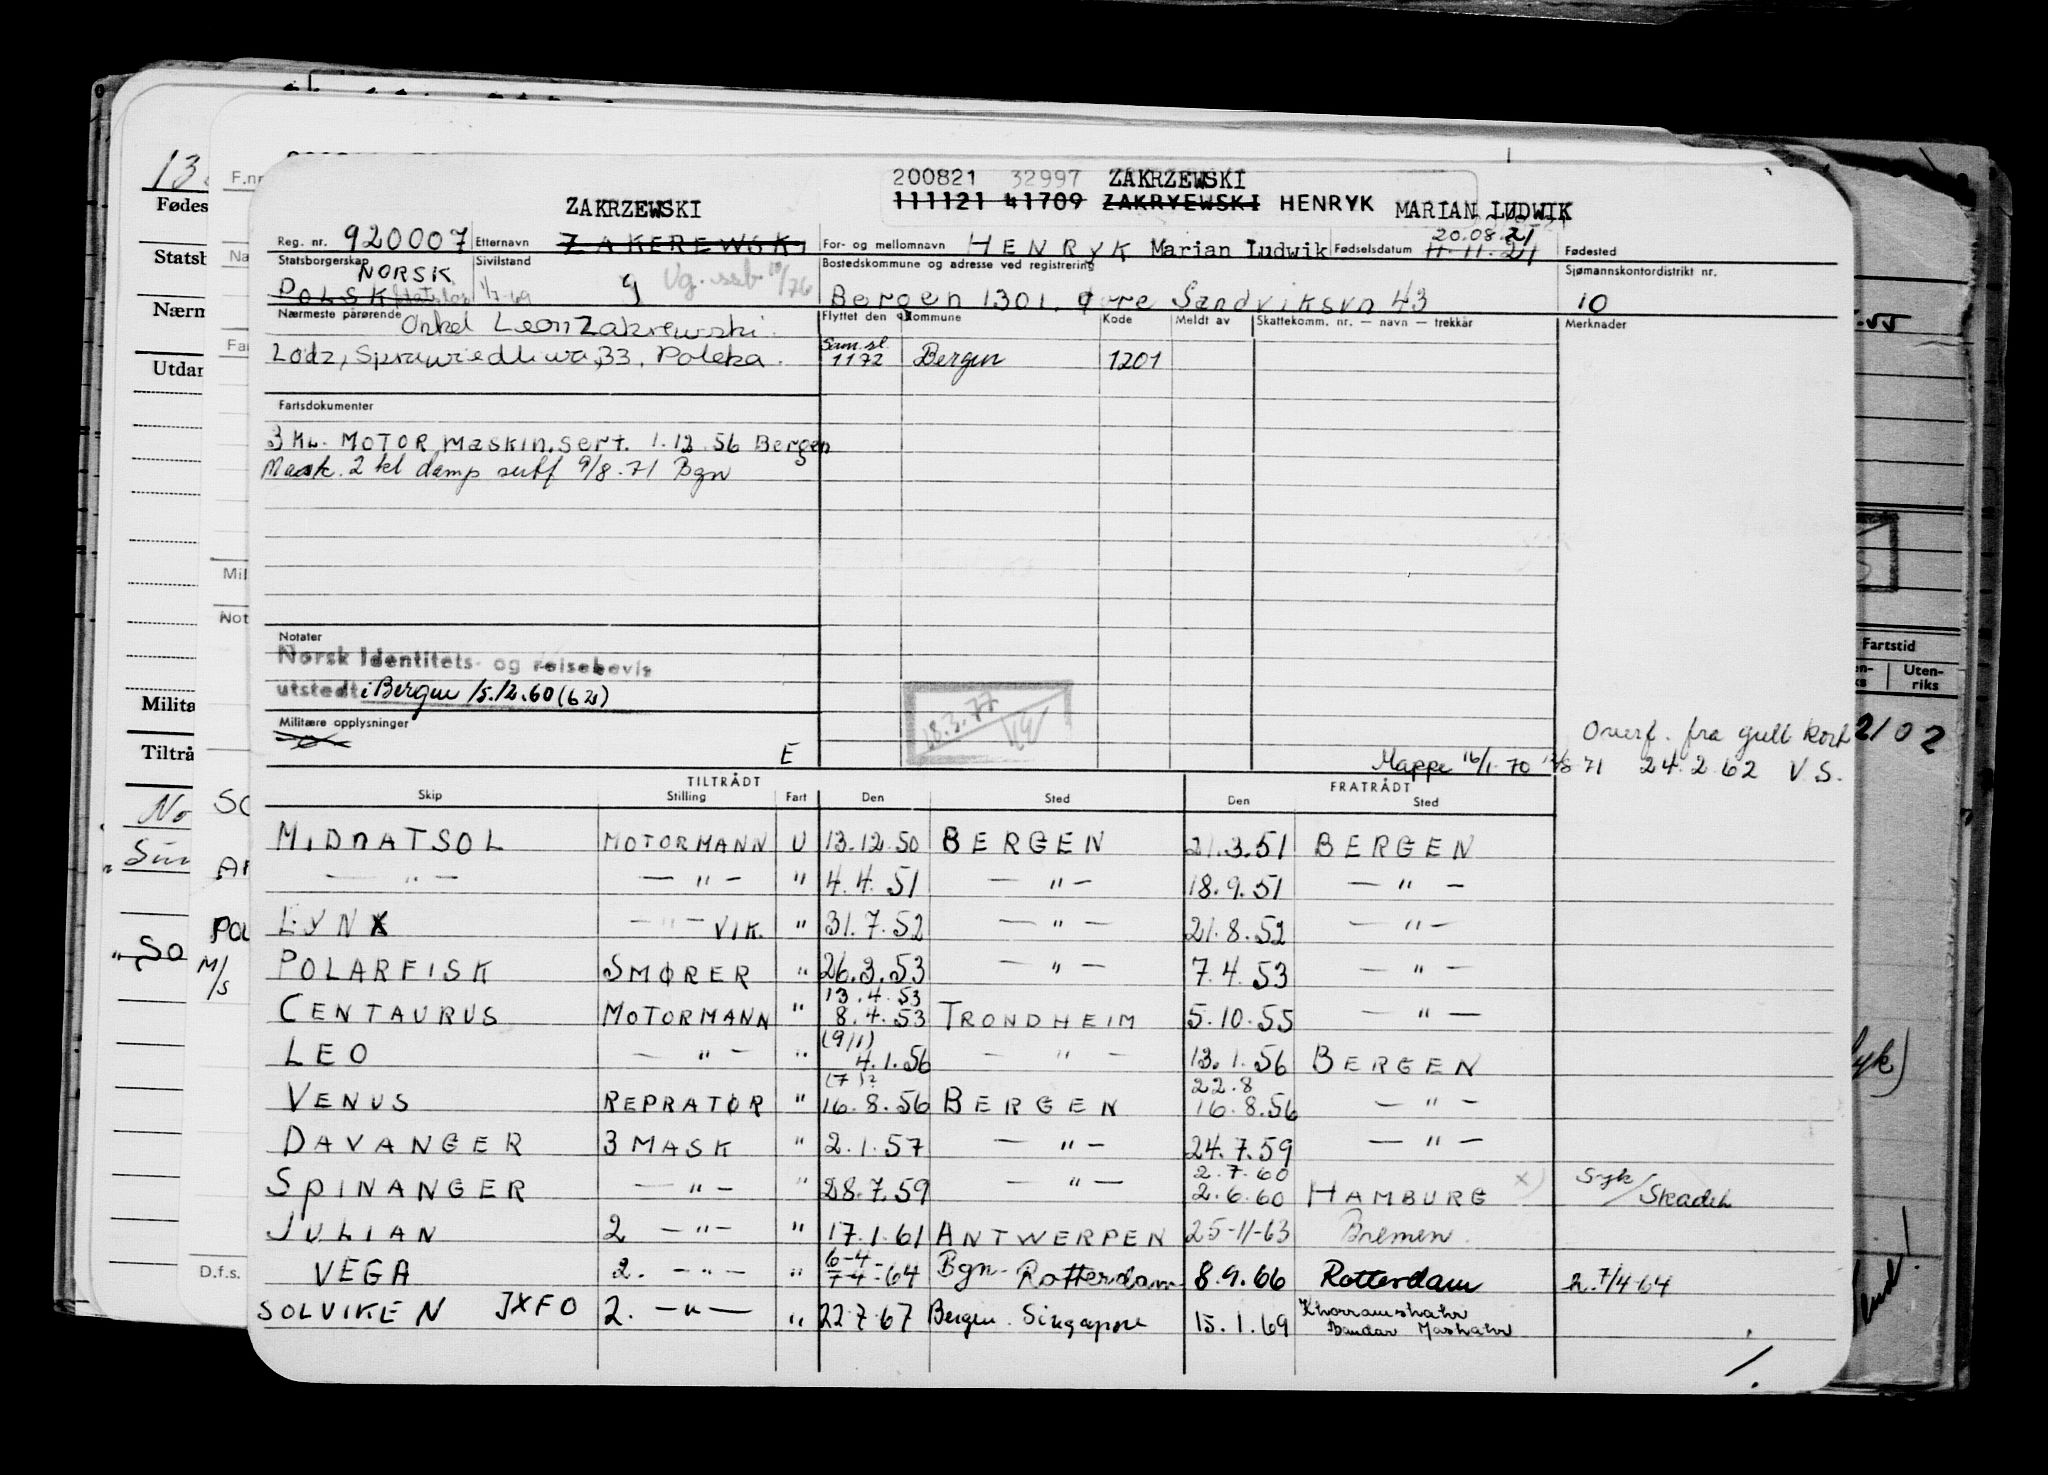 200821 32997 ZAKRZEWSKI
ZAKRZEWSKI 111121 41709 ZAKRYEWSKI HENRYK MARIAN LUDWIK
Reg. nr. 920007 Etternavn ZAKEREWSKI For- og mellomnavn HENRYK Marian Ludwik Fødselsdatum 20.08.21 11.11.21 Fødested
Statsborgerskap NORSK Sivilstand Bostedskommune og adresse ved registrering Sjømannskontordistrikt nr.
POLSK 1/7-69 g Vg. ssb 10/76 Bergen 1301. Øvre Sandviksvn 43 10
Nærmeste pårørende Onkel Leon Zakrewski. Flyttet den Kommune Kode Meldt av Skattekomm. nr. — navn — trekkår Merknader
Lodz, Sprawiedliwa, 33, Poleka. Sam.sl. 1172 Bergen 1201
Fartsdokumenter
3 KL. MOTOR MASKIN.Sert. 1.12.56 Bergen
Mask. 2 kl damp sertf 9/8.71 Bgn
Notater
Norsk Identitets- og reisebevis
utstedt i Bergen 15.12.60 (62)
18.3.77
Militære opplysninger
Overf. fra gult kort
E Mappe 16/1.70 12/8 71 24.2.62 V.S.
TILTRÅDT FRATRÅDT
Skip Stilling Fart Den Sted Den Sted
MIDNATSOL MOTORMANN U 13.12.50 BERGEN 21.3.51 BERGEN
— " — — " — " 4.4.51 — " — 18.9.51 — " —
LYNX — " — VIK. " 31.7.52 — " — 21.8.52 — " —
POLARFISK SMØRER " 26.3.53 — " — 7.4.53 — " —
13.4.53
CENTAURUS MOTORMANN " 8.4.53 TRONDHEIM 5.10.55 — " —
(9/1)
LEO — " — " 4.1.56 — " — 13.1.56 BERGEN
(7 )? 22.8
VENUS REPRATØR " 16.8.56 BERGEN 16.8.56 — " —
DAVANGER 3 MASK " 2.1.57 — " — 24.7.59 — " —
2.7.60
SPINANGER — " — " 28.7.59 — " — 2.6.60 HAMBURG x) Syk/Skadeh
JULIAN 2 — " — " 17.1.61 ANTWERPEN 25-11-63 Bremen.
6-4-
VEGA 2. — " — " 7-4-64 Bgn - Rotterdam 8.9.66 Rotterdam h. 7/4 64
SOLVIKEN JXFO 2. — " — " 22.7.67 Bergen. Singapore 15.1.69 Khorramshahr
Bandar Mashahr
13
Fødes
Statsb
Nærm
Utdan
Milita
Tiltrå
No
" SO
F.nr
Na
Fa
Mil
Not
SO
POL
M/s
D.f.s.
Fartstid
Uten-
riks
2102
syk)